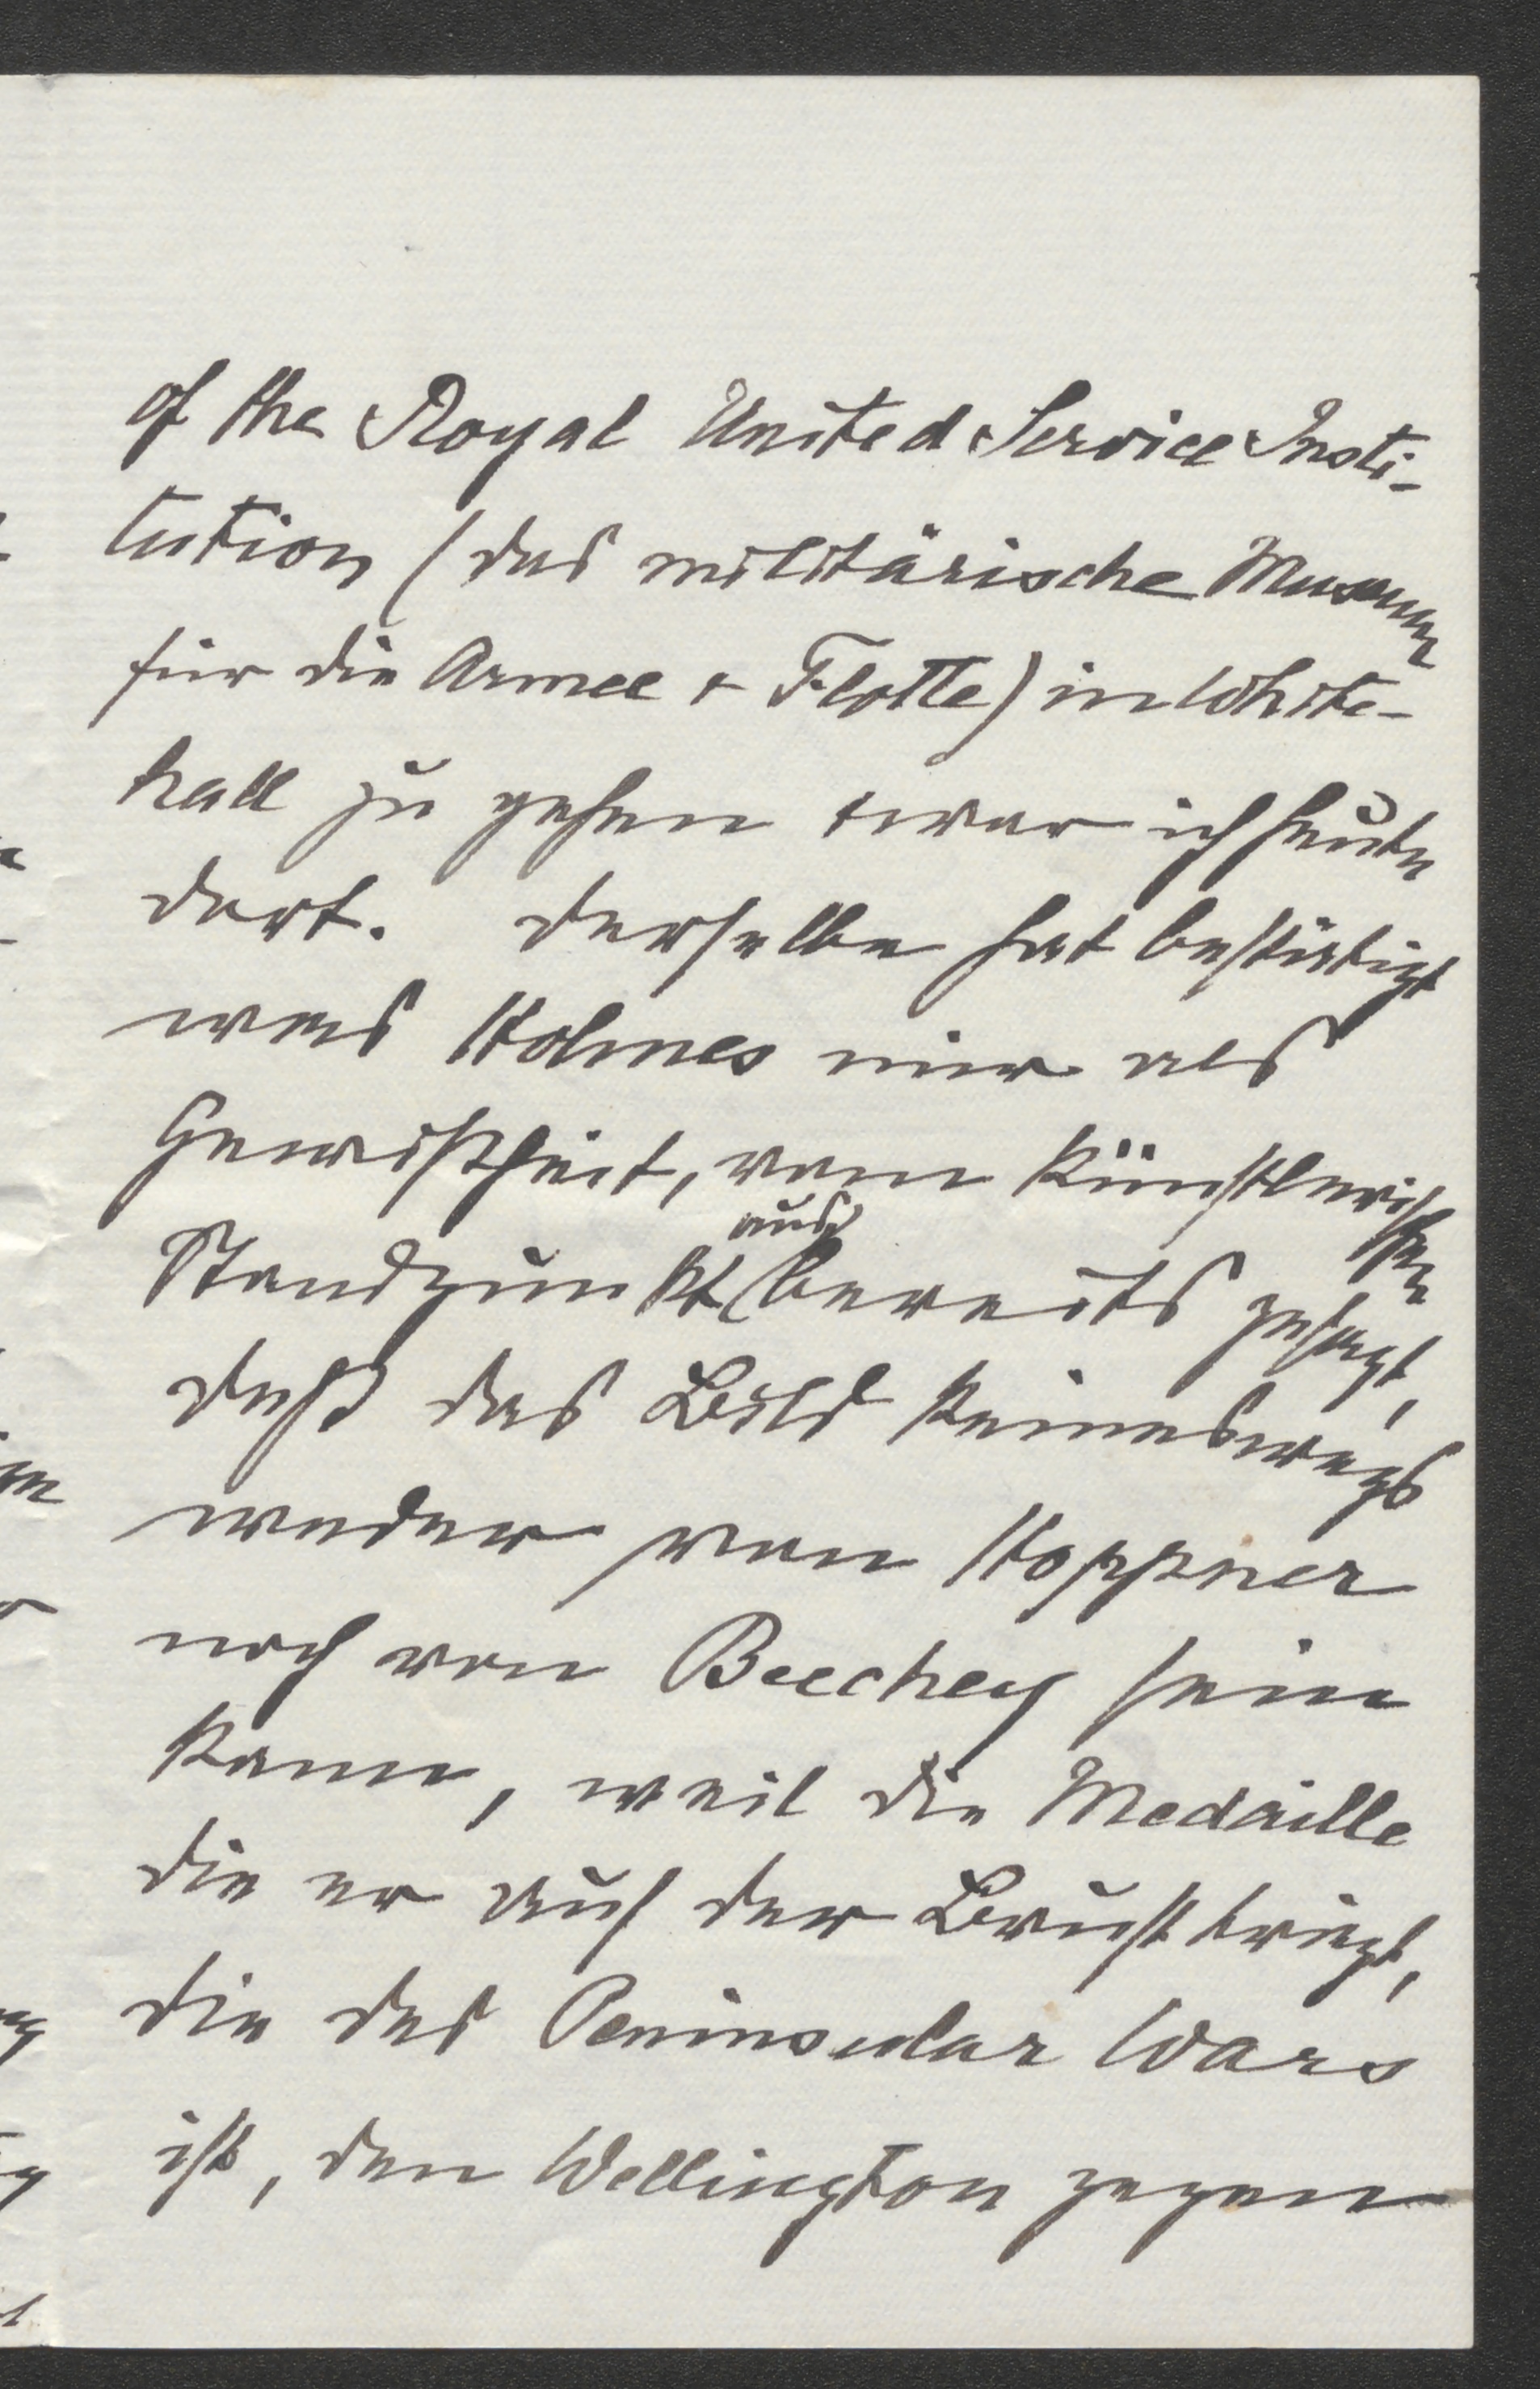 of the Royal United Service Insti-
tution (das militärische Museum
für die Armee + Flotte) in White-
hall zu gehen + war ich heute
dort. Derselbe hat bestätigt
was Holmes mir als
Gewißheit, vom künstlerischen
Standpunkt aus bereits gesagt,
daß das Bild keineswegs
weder von Hoppner
noch von Beechey sein
kann, weil die Medaille
die er auf der Brust trägt,
die des Peninsular Wars
ist, den Wellington gegen